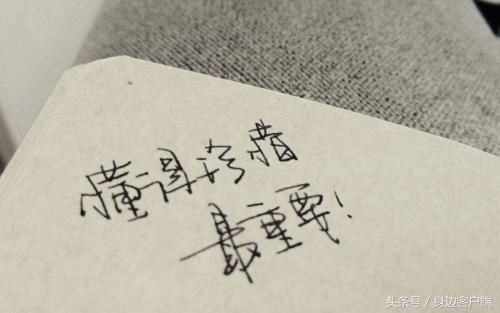 懂得珍惜
最重要!
头条号/身边客户端